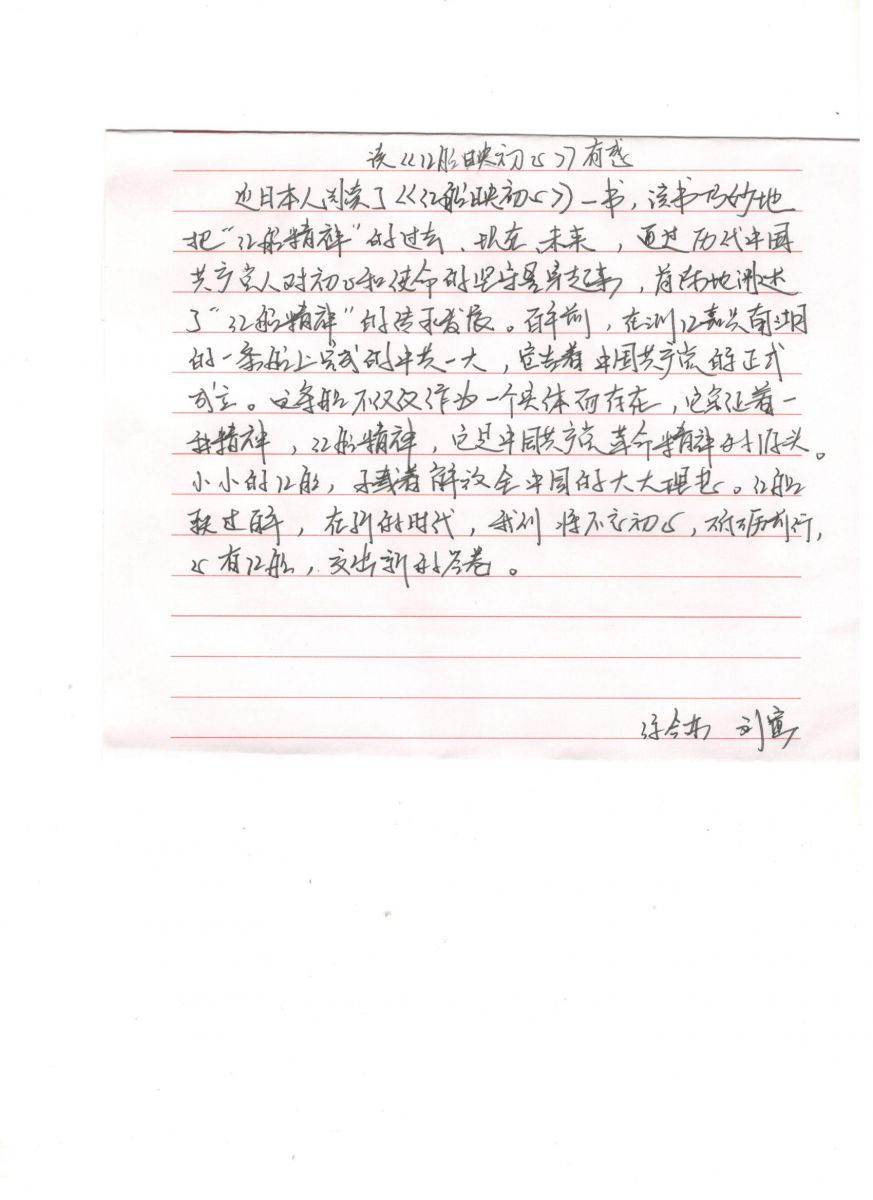 读《红船映初心》有感
近日本人阅读了《红船映初心》一书，该书巧妙地
把“红船精神”的过去、现在、未来，通过历代中国
共产党人对初心和使命的坚守贯穿起来，简练地阐述
了“红船精神”的传承发展。百年前，在浙江嘉兴南湖
的一条船上完成的中共一大，宣告着中国共产党的正式
成立。这条船不仅仅作为一个实体而存在，它象征着一
种精神，红船精神，它是中国共产党革命精神的源头。
小小的红船，承载着解放全中国的大大理想。红船
跃过百年，在新的时代，我们将不忘初心，砥砺前行，
心有红船，交出新的答卷。
刘寅